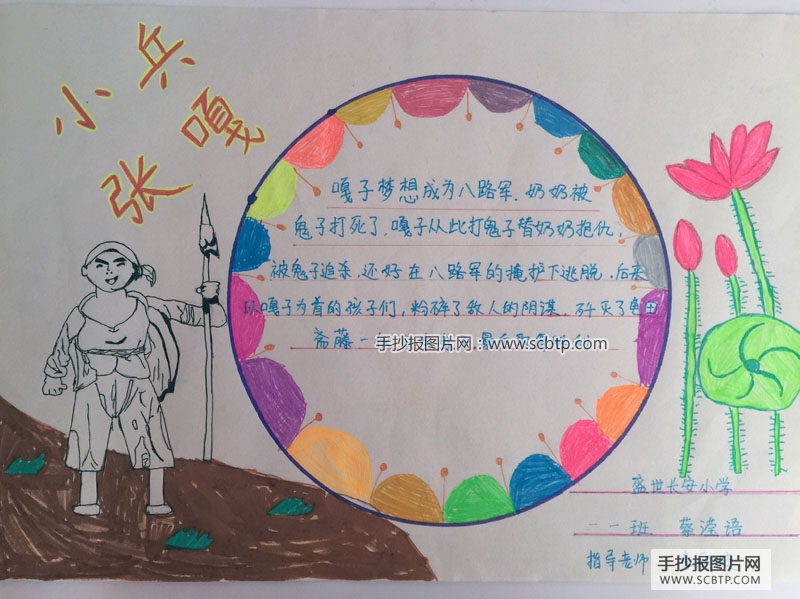 小兵
张嘎
嘎子梦想成为八路军,奶奶被
鬼子打死了,嘎子从此打鬼子替奶奶抱仇,
被鬼子追杀,还好在八路军的掩护下逃脱,后来
以嘎子为首的孩子们,粉碎了敌人的阴谋,歼灭了龟田
斋藤一
手抄报图片网:www.scbtp.com
盛世长安小学
一一班 蔡滢语
指导老师
手抄报图片网
WWW.SCBTP.COM